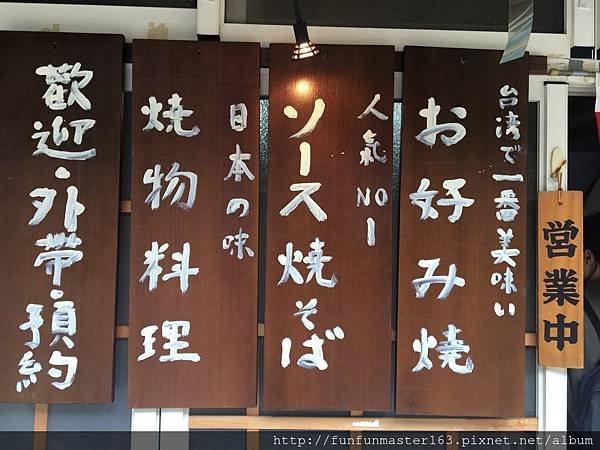 台湾で一番美味い
お好み焼
人氣NO1
ソース焼そば
日本の味
焼物料理
歡迎・外帶・預約
営業中
http://funfunmaster163.pixnet.net/album